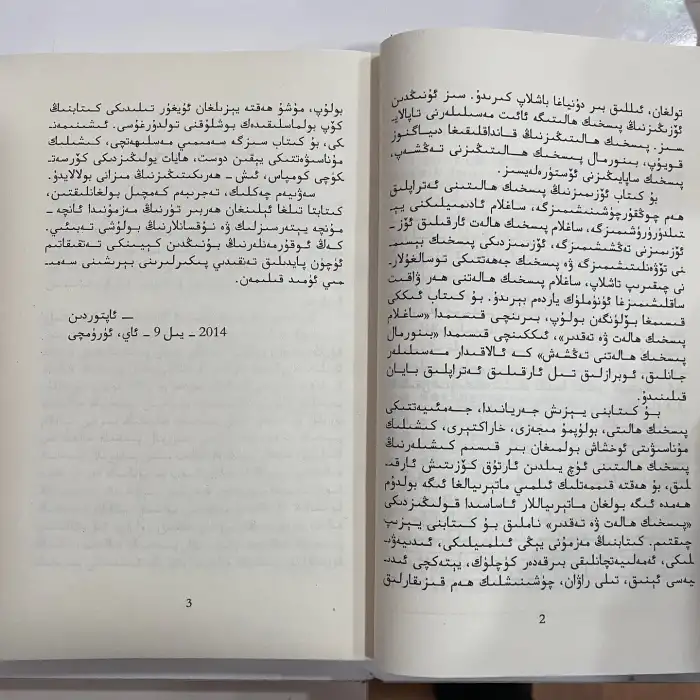 تولغان، ئىللىق بىر دۇنياغا باشلاپ كىرىدۇ. سىز ئۇنىڭدىن
ئۆزىڭىزنىڭ پىسخىك ھالىتىگە ئائىت مەسىلىلەرنى تاپالايـ
سىز. پىسخىك ھالىتىڭىزنىڭ قانداقلىقىغا دىياگنوز
قويۇپ، بىنورمال پىسخىك ھالىتىڭىزنى تەڭشەپ،
پىسخىك ساپايىڭىزنى ئۆستۈرەلەيسىز.
بۇ كىتاب ئۆزىمىزنىڭ پىسخىك ھالىتىنى ئەتراپلىق
ھەم چوڭقۇر چۈشىنىشىمىزگە، ساغلام ئادىمىيلىكىنى يېـ
تىلدۈرۈشىمىزگە، ساغلام پىسخىك ھالەت ئارقىلىق ئۆزـ
ئۆزىمىزنى تەڭشىشىمىزگە، ئۆزىمىزدىكى پىسخىك بېسىمـ
نى تۆۋەنلىتىشىمىزگە ۋە پىسخىك جەھەتتىكى توسالغۇلارـ
نى چىقىرىپ تاشلاپ، ساغلام پىسخىك ھالەتنى ھەر ۋاقىت
ساقلىشىمىزغا ئۈنۈملۈك ياردەم بېرىدۇ. بۇ كىتاب ئىككى
قىسىمغا بۆلۈنگەن بولۇپ، بىرىنچى قىسىمدا «ساغلام
پىسخىك ھالەت ۋە تەقدىر»، ئىككىنچى قىسىمدا «بىنورمال
پىسخىك ھالەتنى تەڭشەش» كە ئالاقىدار مەسىلىلەر
جانلىق، ئوبرازلىق تىل ئارقىلىق ئەتراپلىق بايان
قىلىنىدۇ.
بۇ كىتابنى يېزىش جەريانىدا، جەمئىيەتتىكى
پىسخىك ھالىتى، بولۇپمۇ مىجەزى، خاراكتېرى، كىشىلىك
مۇناسىۋىتى ئوخشاش بولمىغان بىر قىسىم كىشىلەرنىڭ
پىسخىك ھالىتىنى ئۈچ يىلدىن ئارتۇق كۆزىتىش ئارقىـ
لىق، بۇ ھەقتە قىممەتلىك ئىلمىي ماتېرىيالغا ئىگە بولدۇم
ھەمدە ئىگە بولغان ماتېرىياللار ئاساسىدا قولىڭىزدىكى
«پىسخىك ھالەت ۋە تەقدىر» ناملىق بۇ كىتابنى يېزىپ
چىقتىم. كىتابنىڭ مەزمۇنى يېڭى ئىلمىيلىكى، ئىدىيەۋىـ
لىكى، ئەمەلىيەتچانلىقى بىرقەدەر كۈچلۈك، يېتەكچى ئىدىـ
يەسى ئېنىق، تىلى راۋان، چۈشىنىشلىك ھەم قىزىقارلىق
2
بولۇپ، مۇشۇ ھەقتە يېزىلغان ئۇيغۇر تىلىدىكى كىتابنىڭ
كۆپ بولماسلىقىدەك بوشلۇقنى تولدۇرغۇسى. ئىشىنىمەنـ
كى، بۇ كىتاب سىزگە سەمىمىي مەسلىھەتچى، كىشىلىك
مۇناسىۋەتتىكى يېقىن دوست، ھايات يولىڭىزدىكى كۆرسەتـ
كۈچى كومپاس، ئىش ـ ھەرىكىتىڭىزنىڭ مىزانى بولالايدۇ.
سەۋىيەم چەكلىك، تەجرىبەم كەمچىل بولغانلىقتىن،
كىتابتا تىلغا ئېلىنغان ھەربىر تۈرنىڭ مەزمۇنىدا ئانچەـ
مۇنچە يېتەرسىزلىك ۋە نۇقسانلارنىڭ بولۇشى تەبىئىي.
كەڭ ئوقۇرمەنلەرنىڭ بۇنىڭدىن كېيىنكى تەتقىقاتىم
ئۈچۈن پايدىلىق تەنقىدىي پىكىرلىرىنى بېرىشىنى سەمىـ
مىي ئۈمىد قىلىمەن.
— ئاپتوردىن
2014 ـ يىل 9 ـ ئاي، ئۈرۈمچى
3